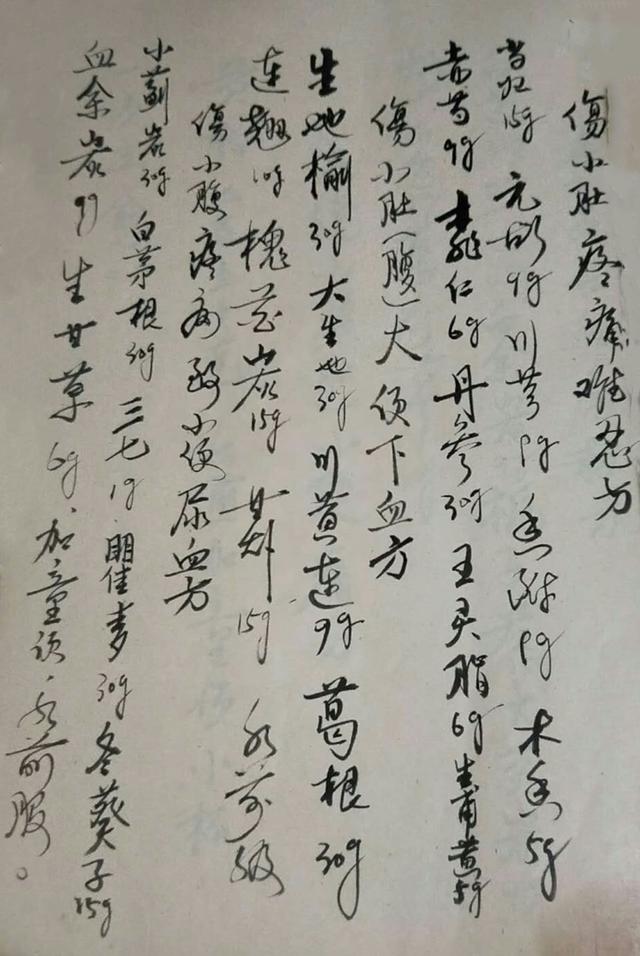 傷小肚疼痛难忍方
当归15g 元胡9g 川芎9g 香附9g 木香5g
赤芍9g 桃仁6g 丹参30g 王灵脂6g 生甫黄5g
傷小肚(腹)大便下血方
生地榆30g 大生地30g 川黄连9g 葛根30g
连翘10g 槐花炭15g 甘草15g 水前服
傷小腹疼痛致小便尿血方
小蓟炭30g 白茅根30g 三七1g 阿佳膏30g 冬葵子15g
血余炭9g 生甘草6g、加童便,水前服。